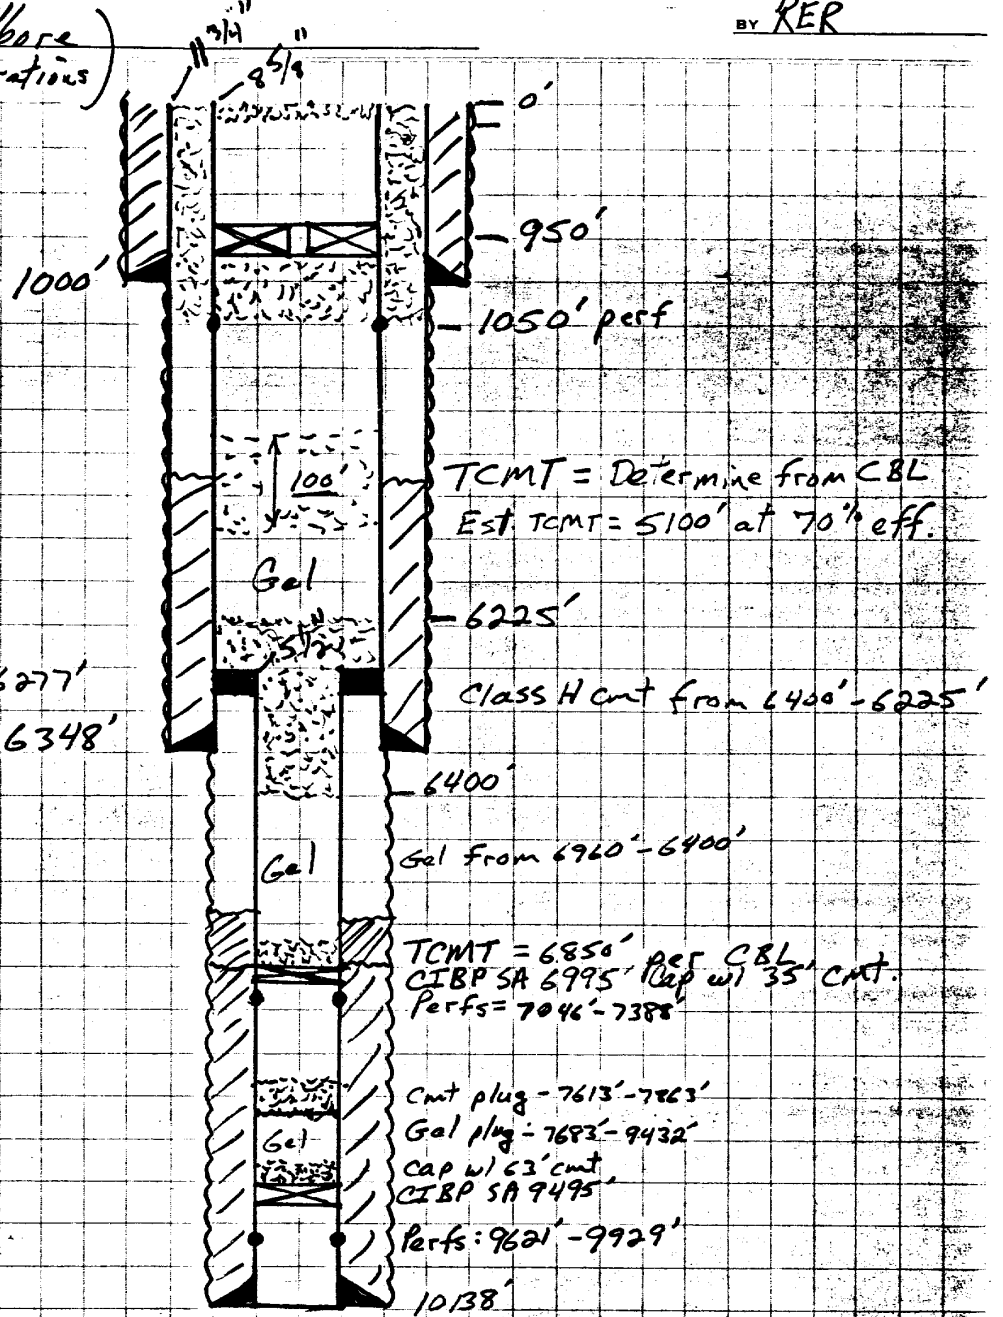 BY RER
ations)
11 3/4"
8 5/8"
0'
950'
1000'
1050' perf
100'
TCMT = Determine from CBL
Est. TCMT = 5100' at 70% eff.
Gel
6225'
5 1/2"
6277'
Class H cmt from 6400' - 6225'
6348'
6400'
Gel
Gel from 6960' - 6400'
TCMT = 6850' per CBL
CIBP SA 6995' Cap w/ 35' cmt.
Perfs = 7046' - 7388'
Cmt plug - 7613' - 7863'
Gel plug - 7683' - 9432'
Gel
Cap w/ 63' cmt
CIBP SA 9495'
Perfs: 9621' - 9929'
10138'